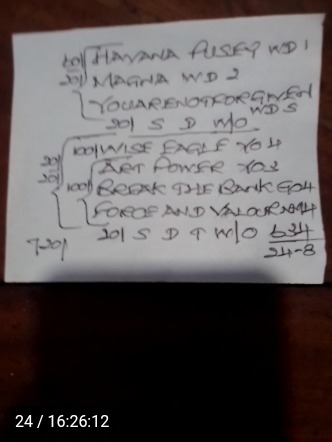 60/ HAVANA PUSEY WD 1
20/ MAGNA WD 2
YOUARENOTFORGIVEN WD S
20/ S D W/O
20/ 100/ WISE EAGLE YO 4
20/ ART POWER YO3
100/ BREAK THE BANK GO4
FORCE AND VALOUR
20/ S D T W/O 634
720/ 24-8
24 / 16:26:12